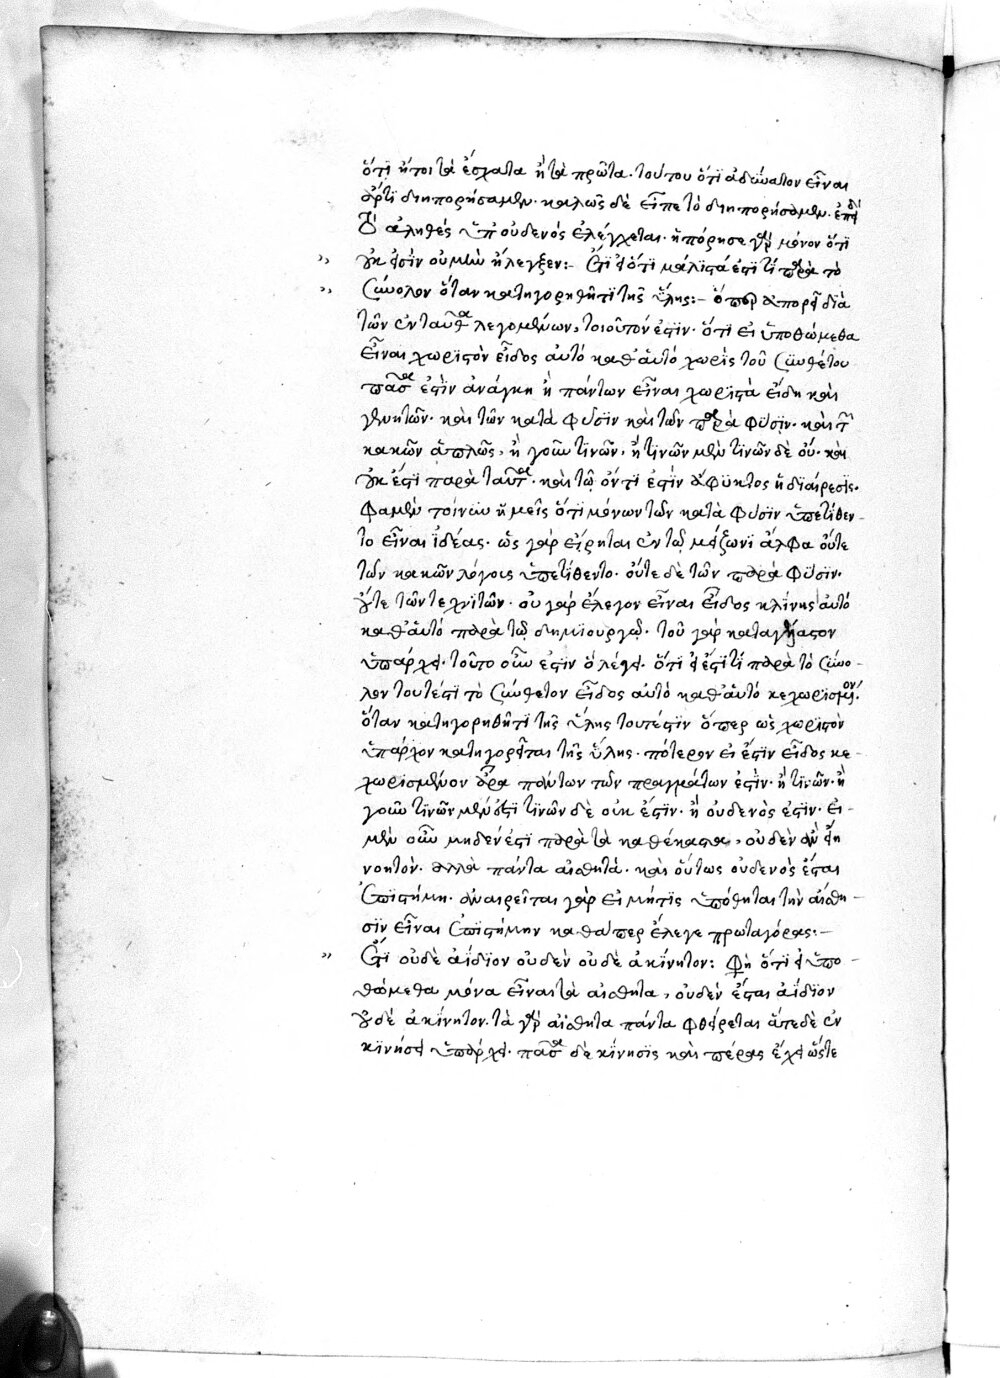 ὅτι ἤτοι τὰ ἔσχατα ἢ τὰ πρῶτα· τούτου ὅτι ἀδύνατον εἶναι
ἄρτι διηπορήσαμεν· καλῶς δὲ εἶπε τὸ διηπορήσαμεν· ἐπειδὴ
τὸ ἀληθὲς ὑπ οὐδενὸς ἐλέγχεται· ἠπόρησε γὰρ μόνον ὅτι
οὐκ εἰσὶν οὐ μὴν ἤλεγξεν:– ἔτι εἰ ὅτι μάλιστά ἐστί τι παρὰ τὸ
σύνολον ὅταν κατηγορηθῆ τι τῆς ὕλης:– ὅπερ ἀπορεῖ διὰ
τῶν ἐνταῦθα λεγομένων, τοιοῦτόν ἐστιν· ὅτι εἰ ὑποθώμεθα
εἶναι χωριστὸν εἶδος αὐτὸ καθ αὑτὸ χωρὶς τοῦ συνθέτου
πᾶσά ἐστιν ἀνάγκη ἢ πάντων εἶναι χωριστὰ εἴδη καὶ
γενητῶν· καὶ τῶν κατὰ φύσιν καὶ τῶν παρὰ φύσιν· καὶ τῶν
κακῶν ἁπλῶς, ἢ γοῦν τινῶν, ἢ τινῶν μὲν τινῶν δὲ οὔ· καὶ
οὐκ ἔστι παρὰ ταῦτα· καὶ τῷ ὄντι ἐστὶν ἄφυκτος ἡ διαίρεσις·
φαμὲν τοίνυν ἡμεῖς ὅτι μόνων τῶν κατὰ φύσιν ὑπετίθεν-
το εἶναι ἰδέας· ὡς γὰρ εἴρηται ἐν τῷ μείζονι ἄλφα οὔτε
τῶν κακῶν λόγοις ὑπετίθεντο· οὔτε δὲ τῶν παρὰ φύσιν·
οὔτε τῶν τεχνιτῶν· οὐ γὰρ ἔλεγον εἶναι εἶδος κλίνης αὐτὸ
καθ αὑτὸ παρὰ τῷ δημιουργῷ· τοῦ γὰρ καταγέλαστον
ὑπάρχει· τοῦτο οὖν ἐστιν ὃ λέγει· ὅτι εἰ ἔστί τι παρὰ τὸ σύνο-
λον τουτέστι τὸ σύνθετον εἶδος αὐτὸ καθ αὑτὸ κεχωρισμένον·
ὅταν κατηγορηθῆ τι τῆς ὕλης τουτέστιν ὅπερ ὡς χωριστὸν
ὑπάρχον κατηγορεῖται τῆς ὕλης· πότερον εἰ ἔστιν εἶδος κε-
χωρισμένον ἆρα πάντων τῶν πραγμάτων ἐστίν· ἢ τινῶν· ἢ
γοῦν τινῶν μὲν ἔστι τινῶν δὲ οὐκ ἔστιν· ἢ οὐδενός ἐστιν· εἰ
μὲν οὖν μηδέν ἐστι παρὰ τὰ καθέκαστα, οὐδὲν ἂν εἴη
νοητόν· ἀλλὰ πάντα αἰσθητά· καὶ οὕτως οὐδενὸς ἔσται
ἐπιστήμη· ἀναιρεῖται γὰρ εἰ μή τις ὑπόθηται τὴν αἴσθη-
σιν εἶναι ἐπιστήμην καθάπερ ἔλεγε πρωταγόρας:–
ἔτι οὐδὲ ἀΐδιον οὐδὲν οὐδὲ ἀκίνητον: φησὶ ὅτι εἰ ὑπο-
θώμεθα μόνα εἶναι τὰ αἰσθητά, οὐδὲν ἔσται ἀΐδιον
οὐδὲ ἀκίνητον. τὰ γὰρ αἰσθητὰ πάντα φθείρεται ἅτε δὲ ἐν
κινήσει ὑπάρχει· πᾶσα δὲ κίνησις καὶ πέρας ἔχει ὥστε